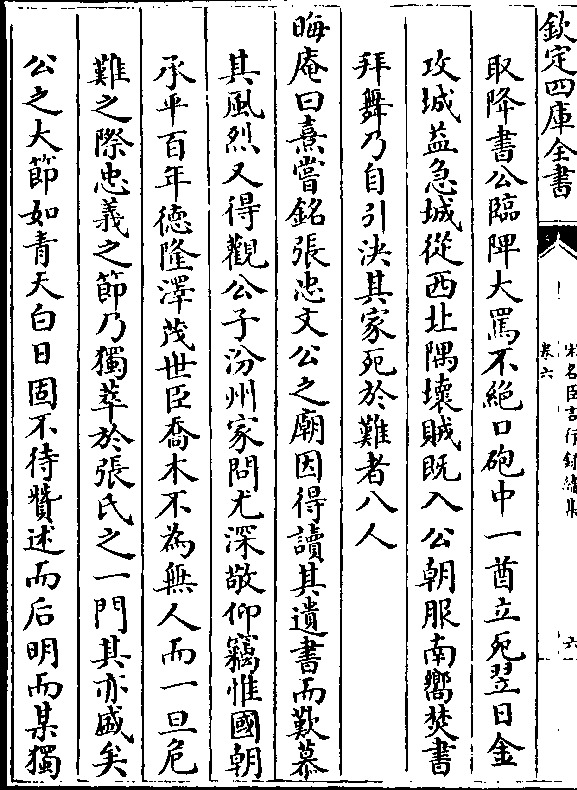 欽定四庫全書
宋名臣言行録續集
卷六
六
取降書公臨陴大罵不絶口砲中一酋立死翌日金
攻城益急城從西北隅壊賊既入公朝服南嚮焚書
拜舞乃自引決其家死於難者八人
晦庵曰熹嘗銘張忠文公之廟因得讀其遺書而歎慕
其風烈又得觀公子汾州家問尤深敬仰竊惟國朝
承平百年徳隆澤茂世臣喬木不為無人而一旦危
難之際忠義之節乃獨萃於張氏之一門其亦盛矣
公之大節如青天白日固不待贊述而后明而某獨